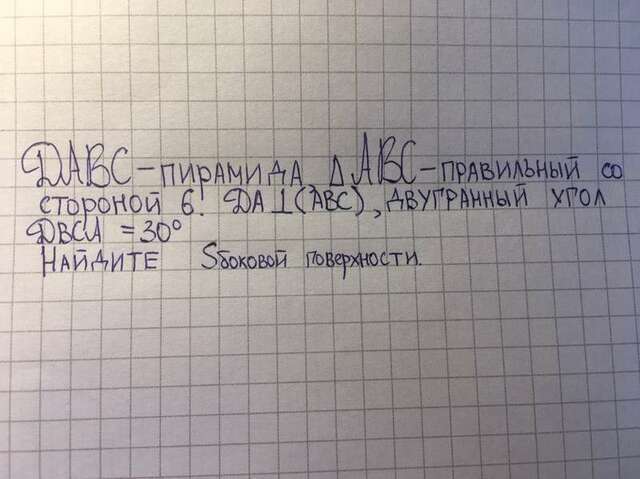 DABC – пирамида Δ ABC – правильный со
стороной 6. DA⊥(ABC), двугранный угол
DBCA = 30°
Найдите Sбоковой поверхности.